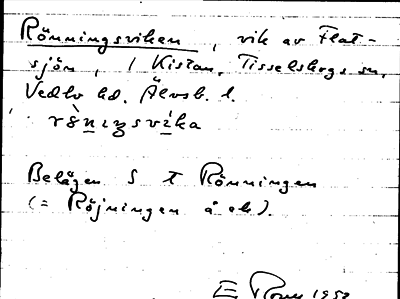 Rönningsviken, vik av Flat-
sjön, i Kistan, Tisselskogs sn,
Vedbo hd. Älvsb. l.
Belägen S t Rönningen
(= Röjningen å ek).
1952